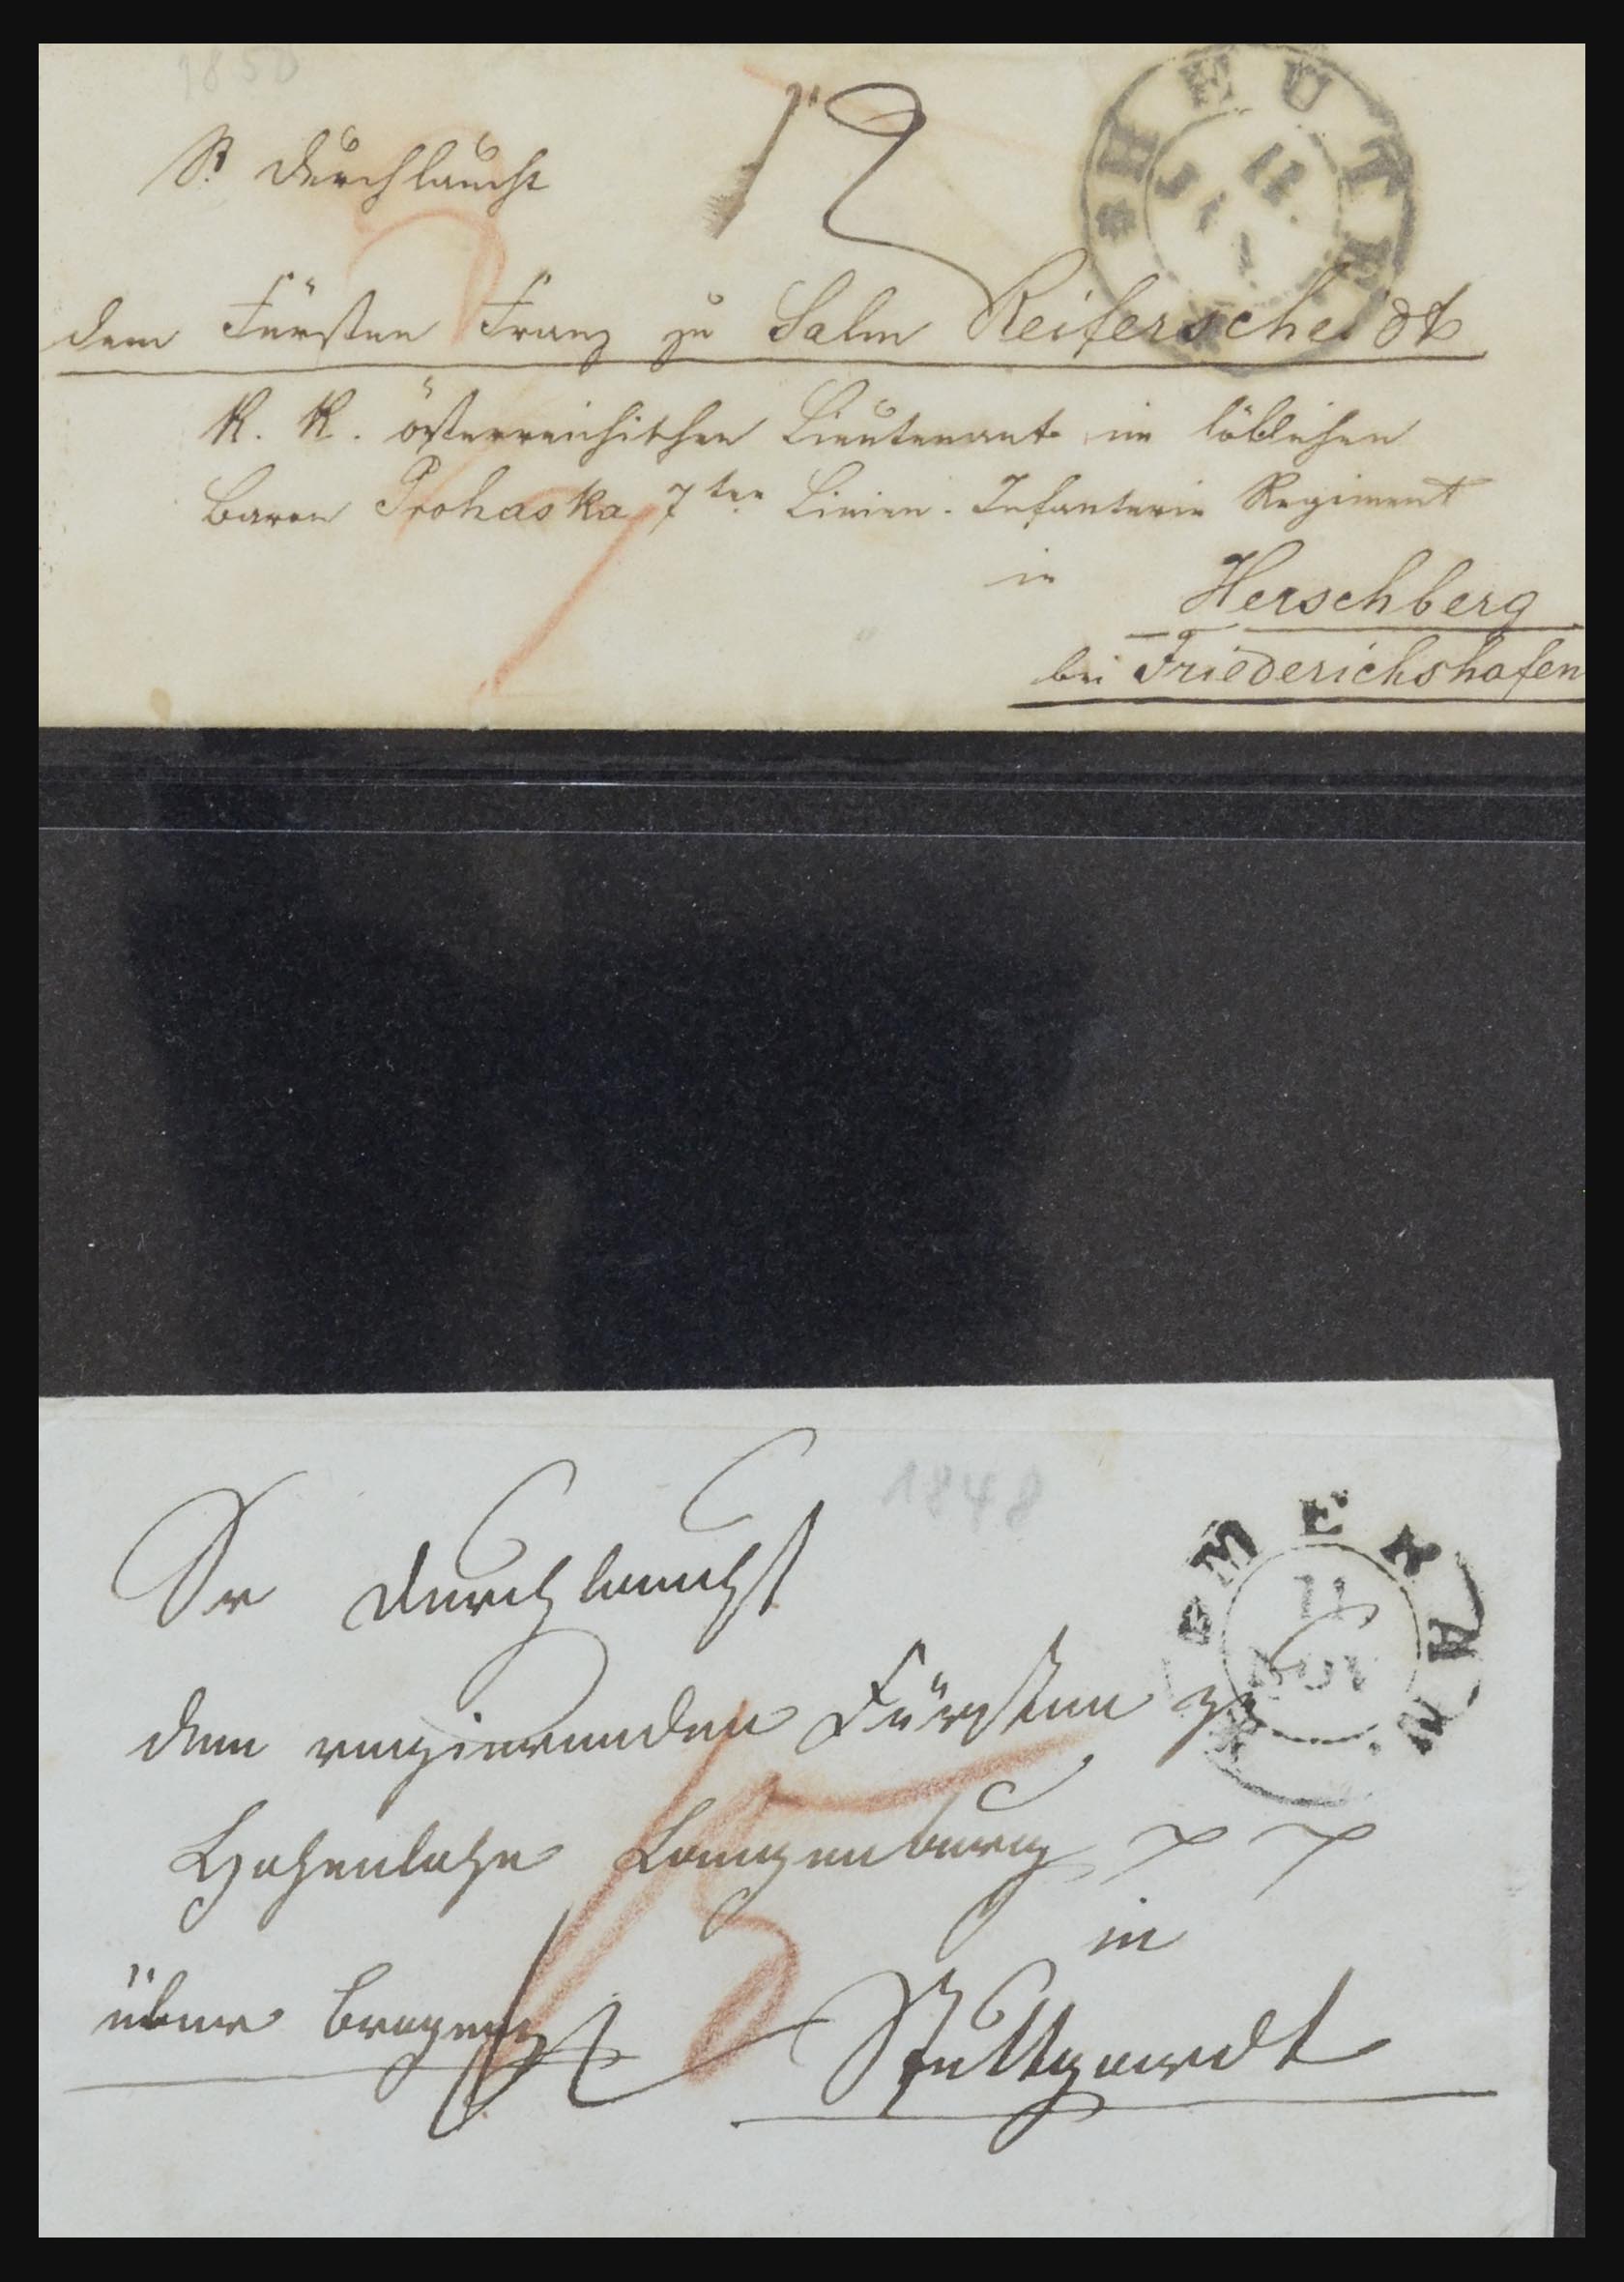 1850
Sr Durchlaucht
12
dem Fürsten Franz zu Salm Reiferscheidt
K. K. österreichischen Lieutenant im löblichen
Baron Prohaska 7ten Linien-Infanterie Regiment
in Herschberg
bei Friederichshafen
REUTTE
11.
1848
Sr Durchlaucht
dem regierenden Fürsten zu
Hohenlohe Langenburg
in
über Bregenz Stuttgardt
11